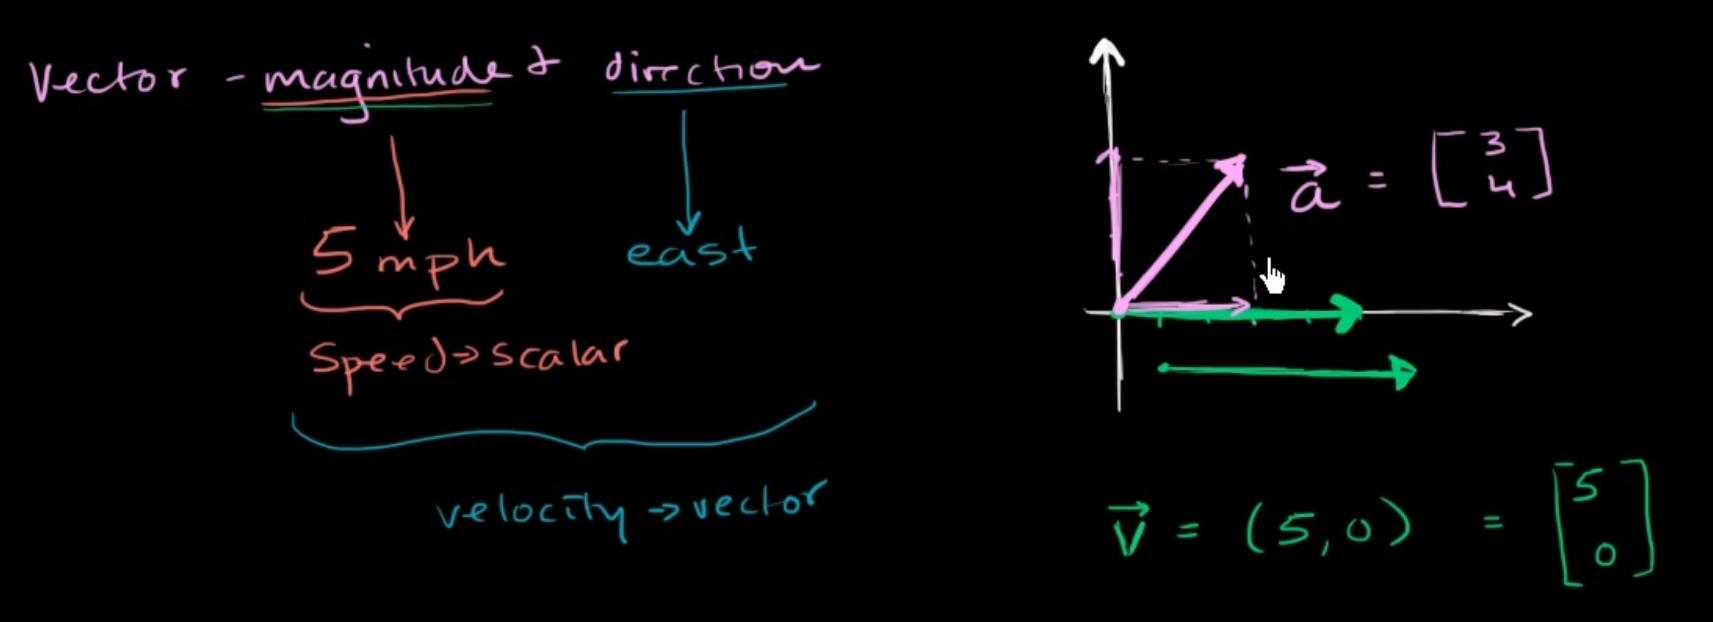 Vector - magnitude & direction
5 mph
east
Speed → scalar
velocity → vector
a⃗ = [3 4]
v⃗ = (5, 0) = [5 0]